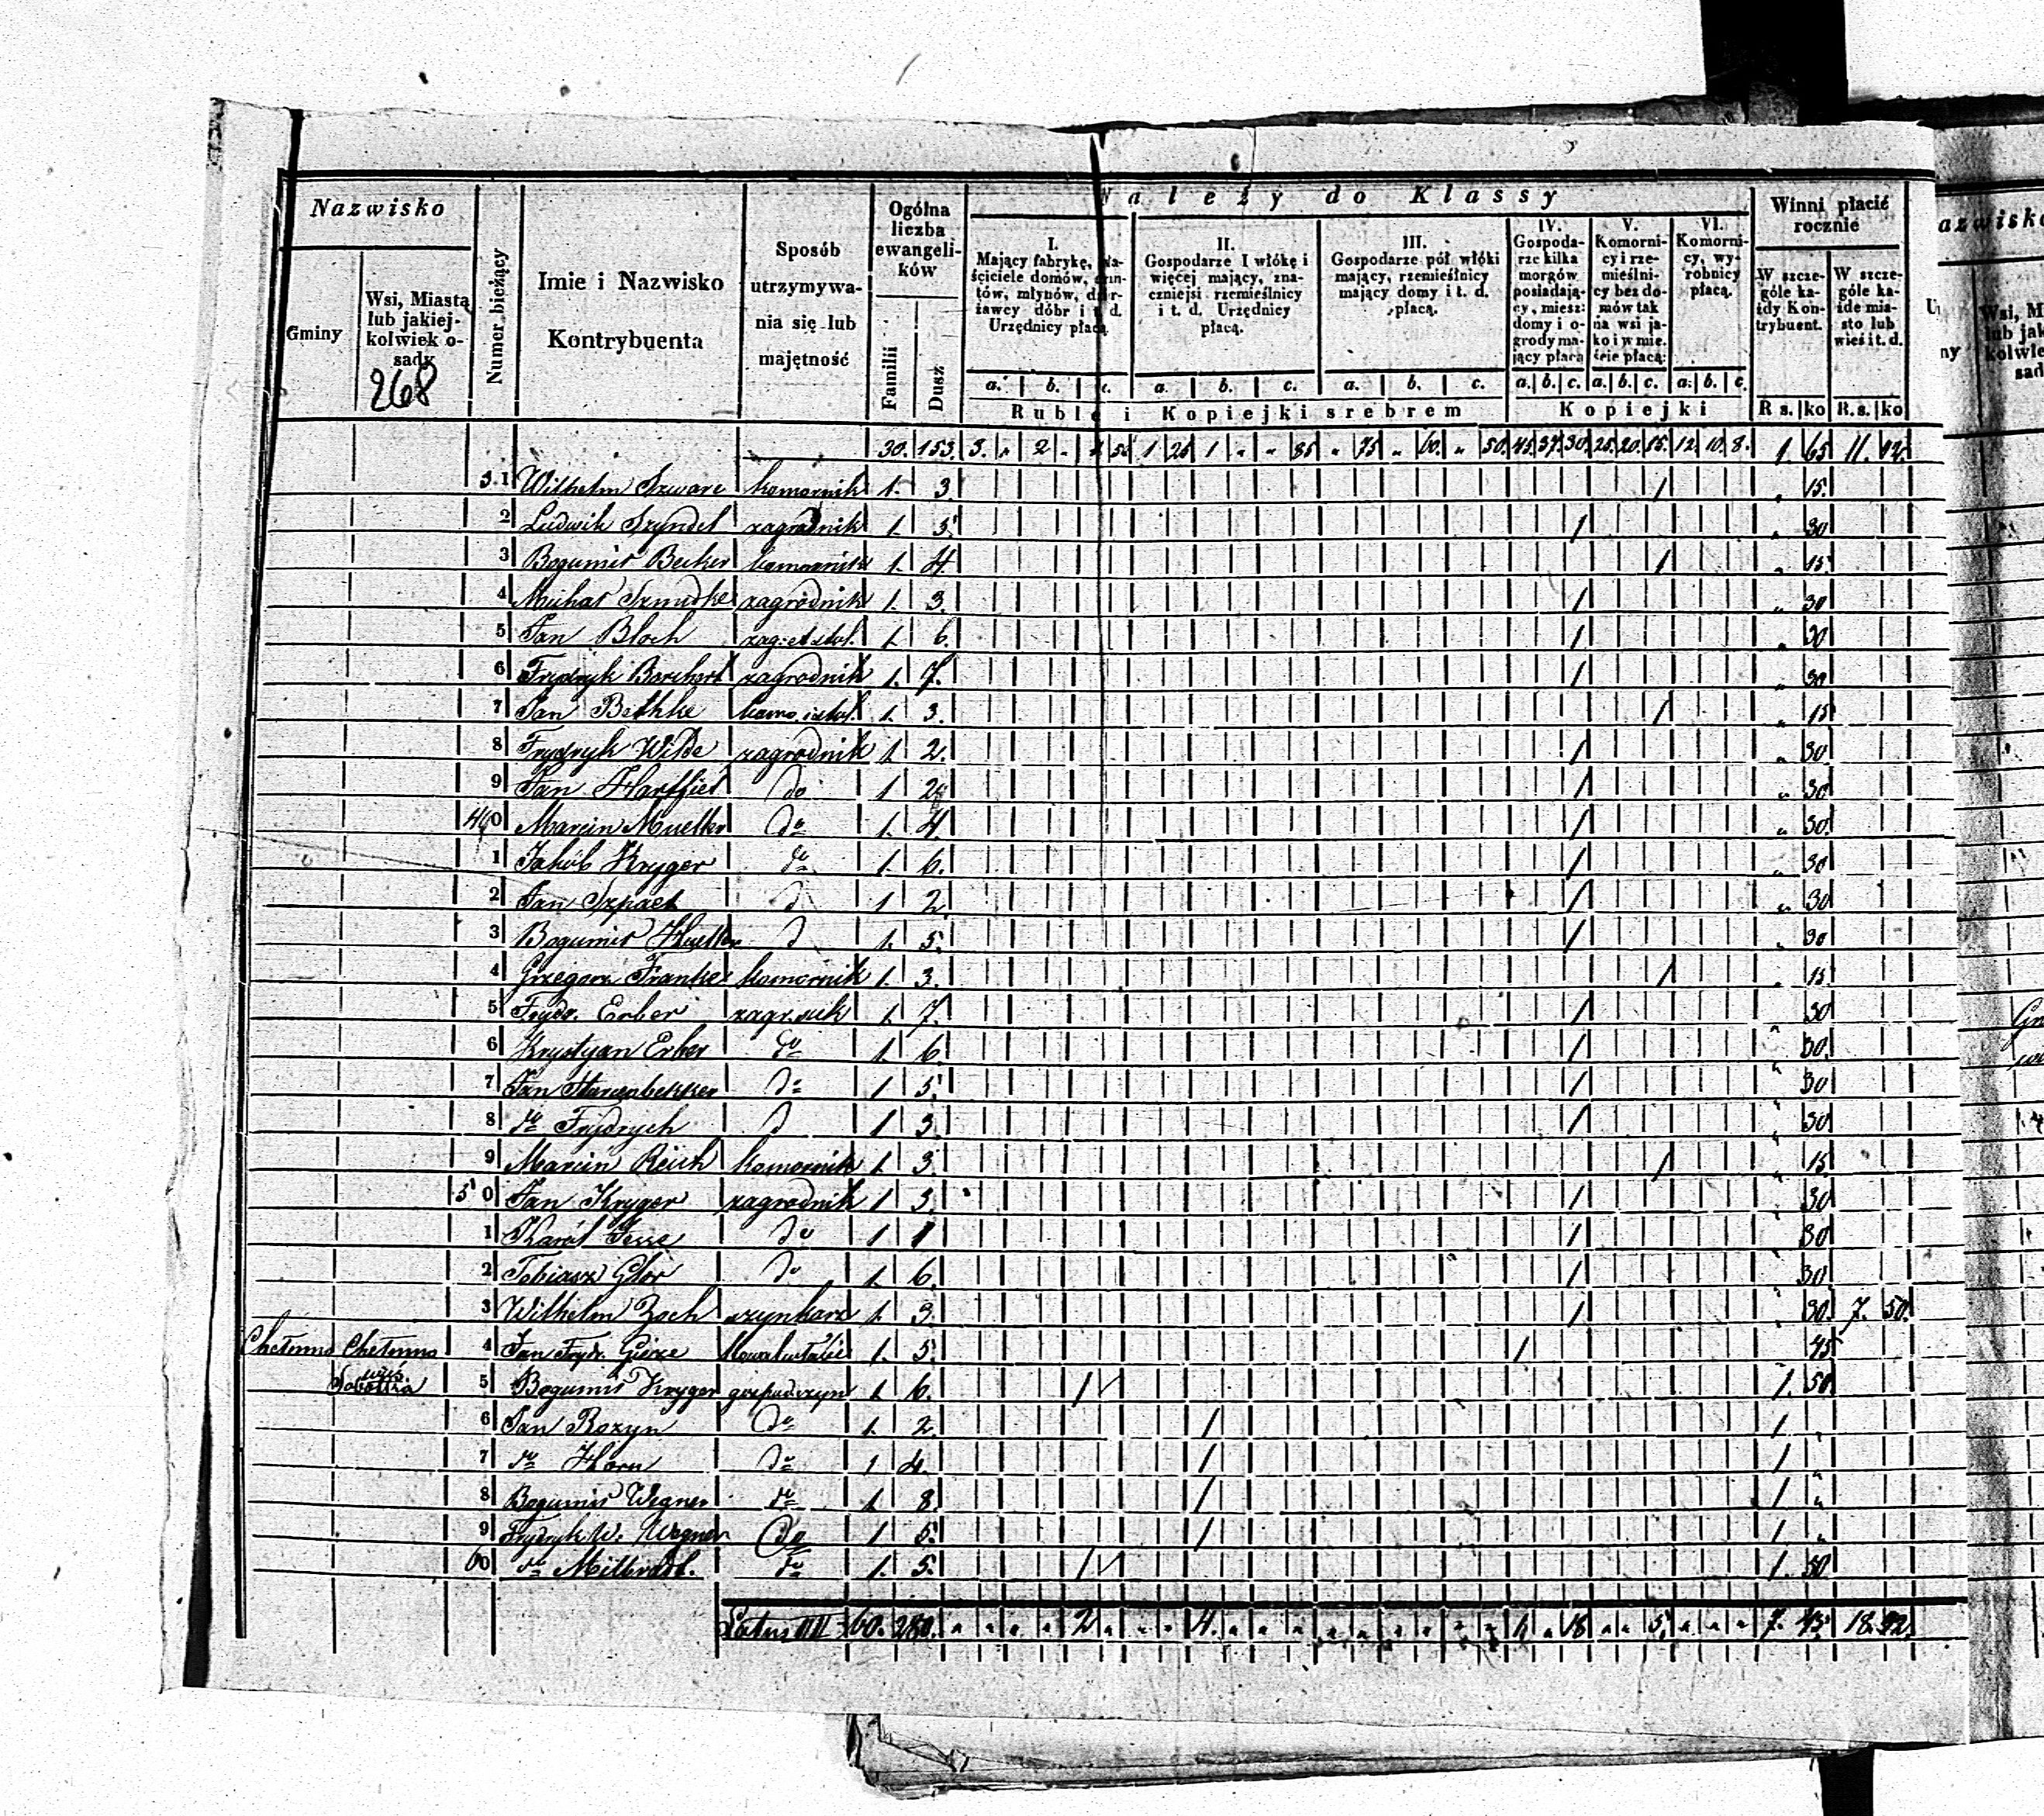 Nazwisko
Gminy
Wsi, Miasta lub jakiejkolwiek osady
268
Numer bieżący
Imie i Nazwisko Kontrybuenta
Sposób utrzymywania się lub majętność
Ogólna liczba ewangelików
Familii
Dusz
Należy do Klassy
I. Mający fabrykę, właściciele domów, gruntów, młynów, dzierżawcy dóbr i t. d. Urzędnicy płacą
II. Gospodarze I włókę i więcej mający, znaczniejsi rzemieślnicy i t. d. Urzędnicy płacą.
III. Gospodarze pół włóki mający, rzemieślnicy mający domy i t. d. płacą.
IV. Gospodarze kilka morgów posiadający, miesz: domy i ogrody mający płacą
V. Komornicy i rzemieślnicy bez domów tak na wsi jako i w mieście płacą:
VI. Komornicy, wyrobnicy płacą.
Winni płacić rocznie
W szczególe każdy Kontrybuent.
W szczególe każde miasto lub wieś i t. d.
a. b. c. a. b. c. a. b. c. a. b. c. a. b. c. a. b. c.
Ruble i Kopiejki srebrem Kopiejki R s. ko R. s. ko
30. 153. 3. " 2 " 1 50 1 25 1 " " 85 " 75 " 60. " 50. 45. 37. 30. 25. 20. 15. 12. 10. 8. 1. 65 11. 42.
3.1 Wilhelm Szwarc komornik 1. 3. 1 " 15.
2 Ludwik Szyndel zagrodnik 1. 5. 1 " 30
3 Bogumił Becker komornik 1. 4. 1 " 15
4 Michał Szmidke zagrodnik 1. 3. 1 " 30
5 Jan Bloch 1. 6. 1 " 30
6 Frydryk Borchart zagrodnik 1. 7. 1 " 30
7 Jan Bethke 1. 3. 1 " 15
8 Frydryk Wilde zagrodnik 1. 2. 1 " 30
9 Jan Hartfiel do 1 2. 1 " 30
40 Marcin Mueller do 1. 4. 1 " 30
1 Jakób Kryger do 1. 6. 1 " 30
2 Jan Szpact d 1 2. 1 " 30
3 Bogumił d 1. 5. 1 " 30
4 Grzegorz Franke komornik 1. 3. 1 " 15
5 Frydr. Erber 1. 7. 1 30
6 Krystyan Erber do 1. 6. 1 " 30.
7 Jan do 1 5. 1 " 30
8 do Frydrych d 1 3. 1 " 30
9 Marcin Reich komornik 1. 3. 1 " 15
50 Jan Kryger zagrodnik 1 3. 1 " 30
1 Karól Jesse do 1 1 1 30
2 Tobiasz Glor do 1. 6. 1 30
3 Wilhelm Zoch szynkarz 1. 3. 1 " 30. 7. 50.
Chełmno Chełmno 4 Jan Frydr. Giesze 1. 5. 1 45
wieś.
5 Bogumił Kryger 1. 6. 1 1. 50
6 Jan Rozyn do 1. 2. 1 1. "
7 do Horn do 1 4. 1 1 "
8 Bogumił Wegner do 1. 8. 1 1 "
9 Frydryk W. Wegner do 1 5. 1 1 "
60 do do 1. 5. 1 1. 50
Latus 60. 280. 2 4. 1 18 5. 7. 45. 18. 92.